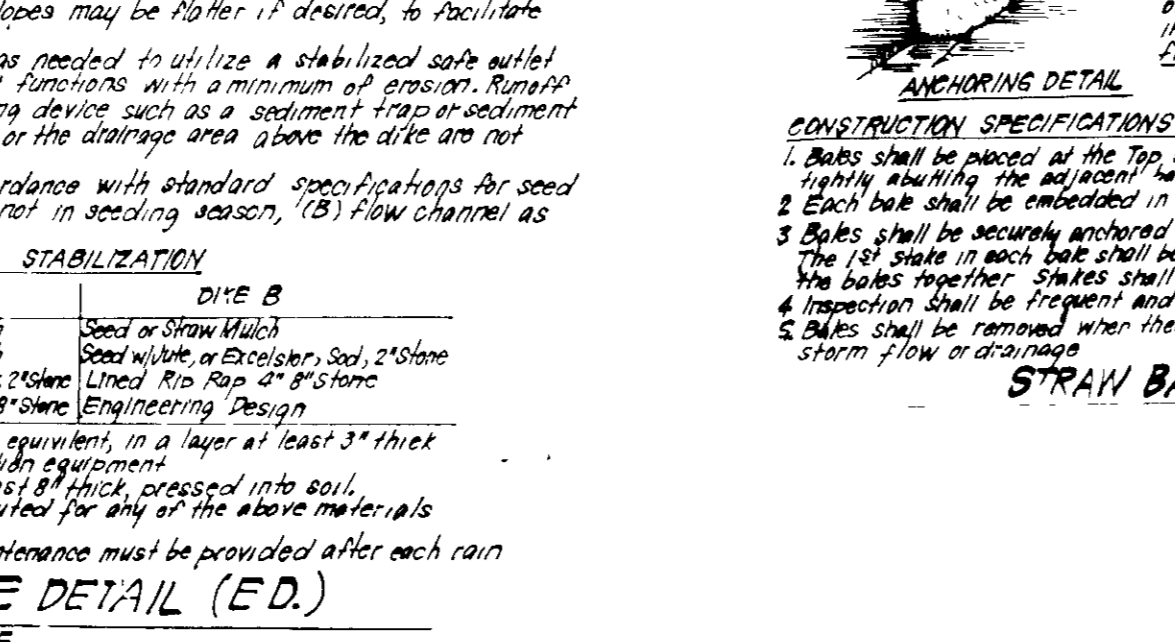 lopes may be flatter if desired, to facilitate
as needed to utilize a stabilized safe outlet
functions with a minimum of erosion. Runoff
ng device such as a sediment trap or sediment
or the drainage area above the dike are not
rdance with standard specifications for seed
not in seeding season, (B) flow channel as
STABILIZATION
DIKE B
Seed or Straw Mulch
Seed w/Jute, or Excelsior, Sod, 2" Stone
2" Stone Lined Rip Rap 4" 8" Stone
8" Stone Engineering Design
equivilent, in a layer at least 3" thick
ion equipment
st 8" thick, pressed into soil.
uted for any of the above materials
ntenance must be provided after each rain
E DETAIL (E D.)
ANCHORING DETAIL
CONSTRUCTION SPECIFICATIONS
1. Bales shall be placed at the Top
tightly abutting the adjacent ba
2 Each bale shall be embedded in
3 Bales shall be securely anchored
The 1st stake in each bale shall be
the bales together Stakes shall
4 Inspection shall be frequent and
5. Bales shall be removed when the
storm flow or drainage
STRAW BA